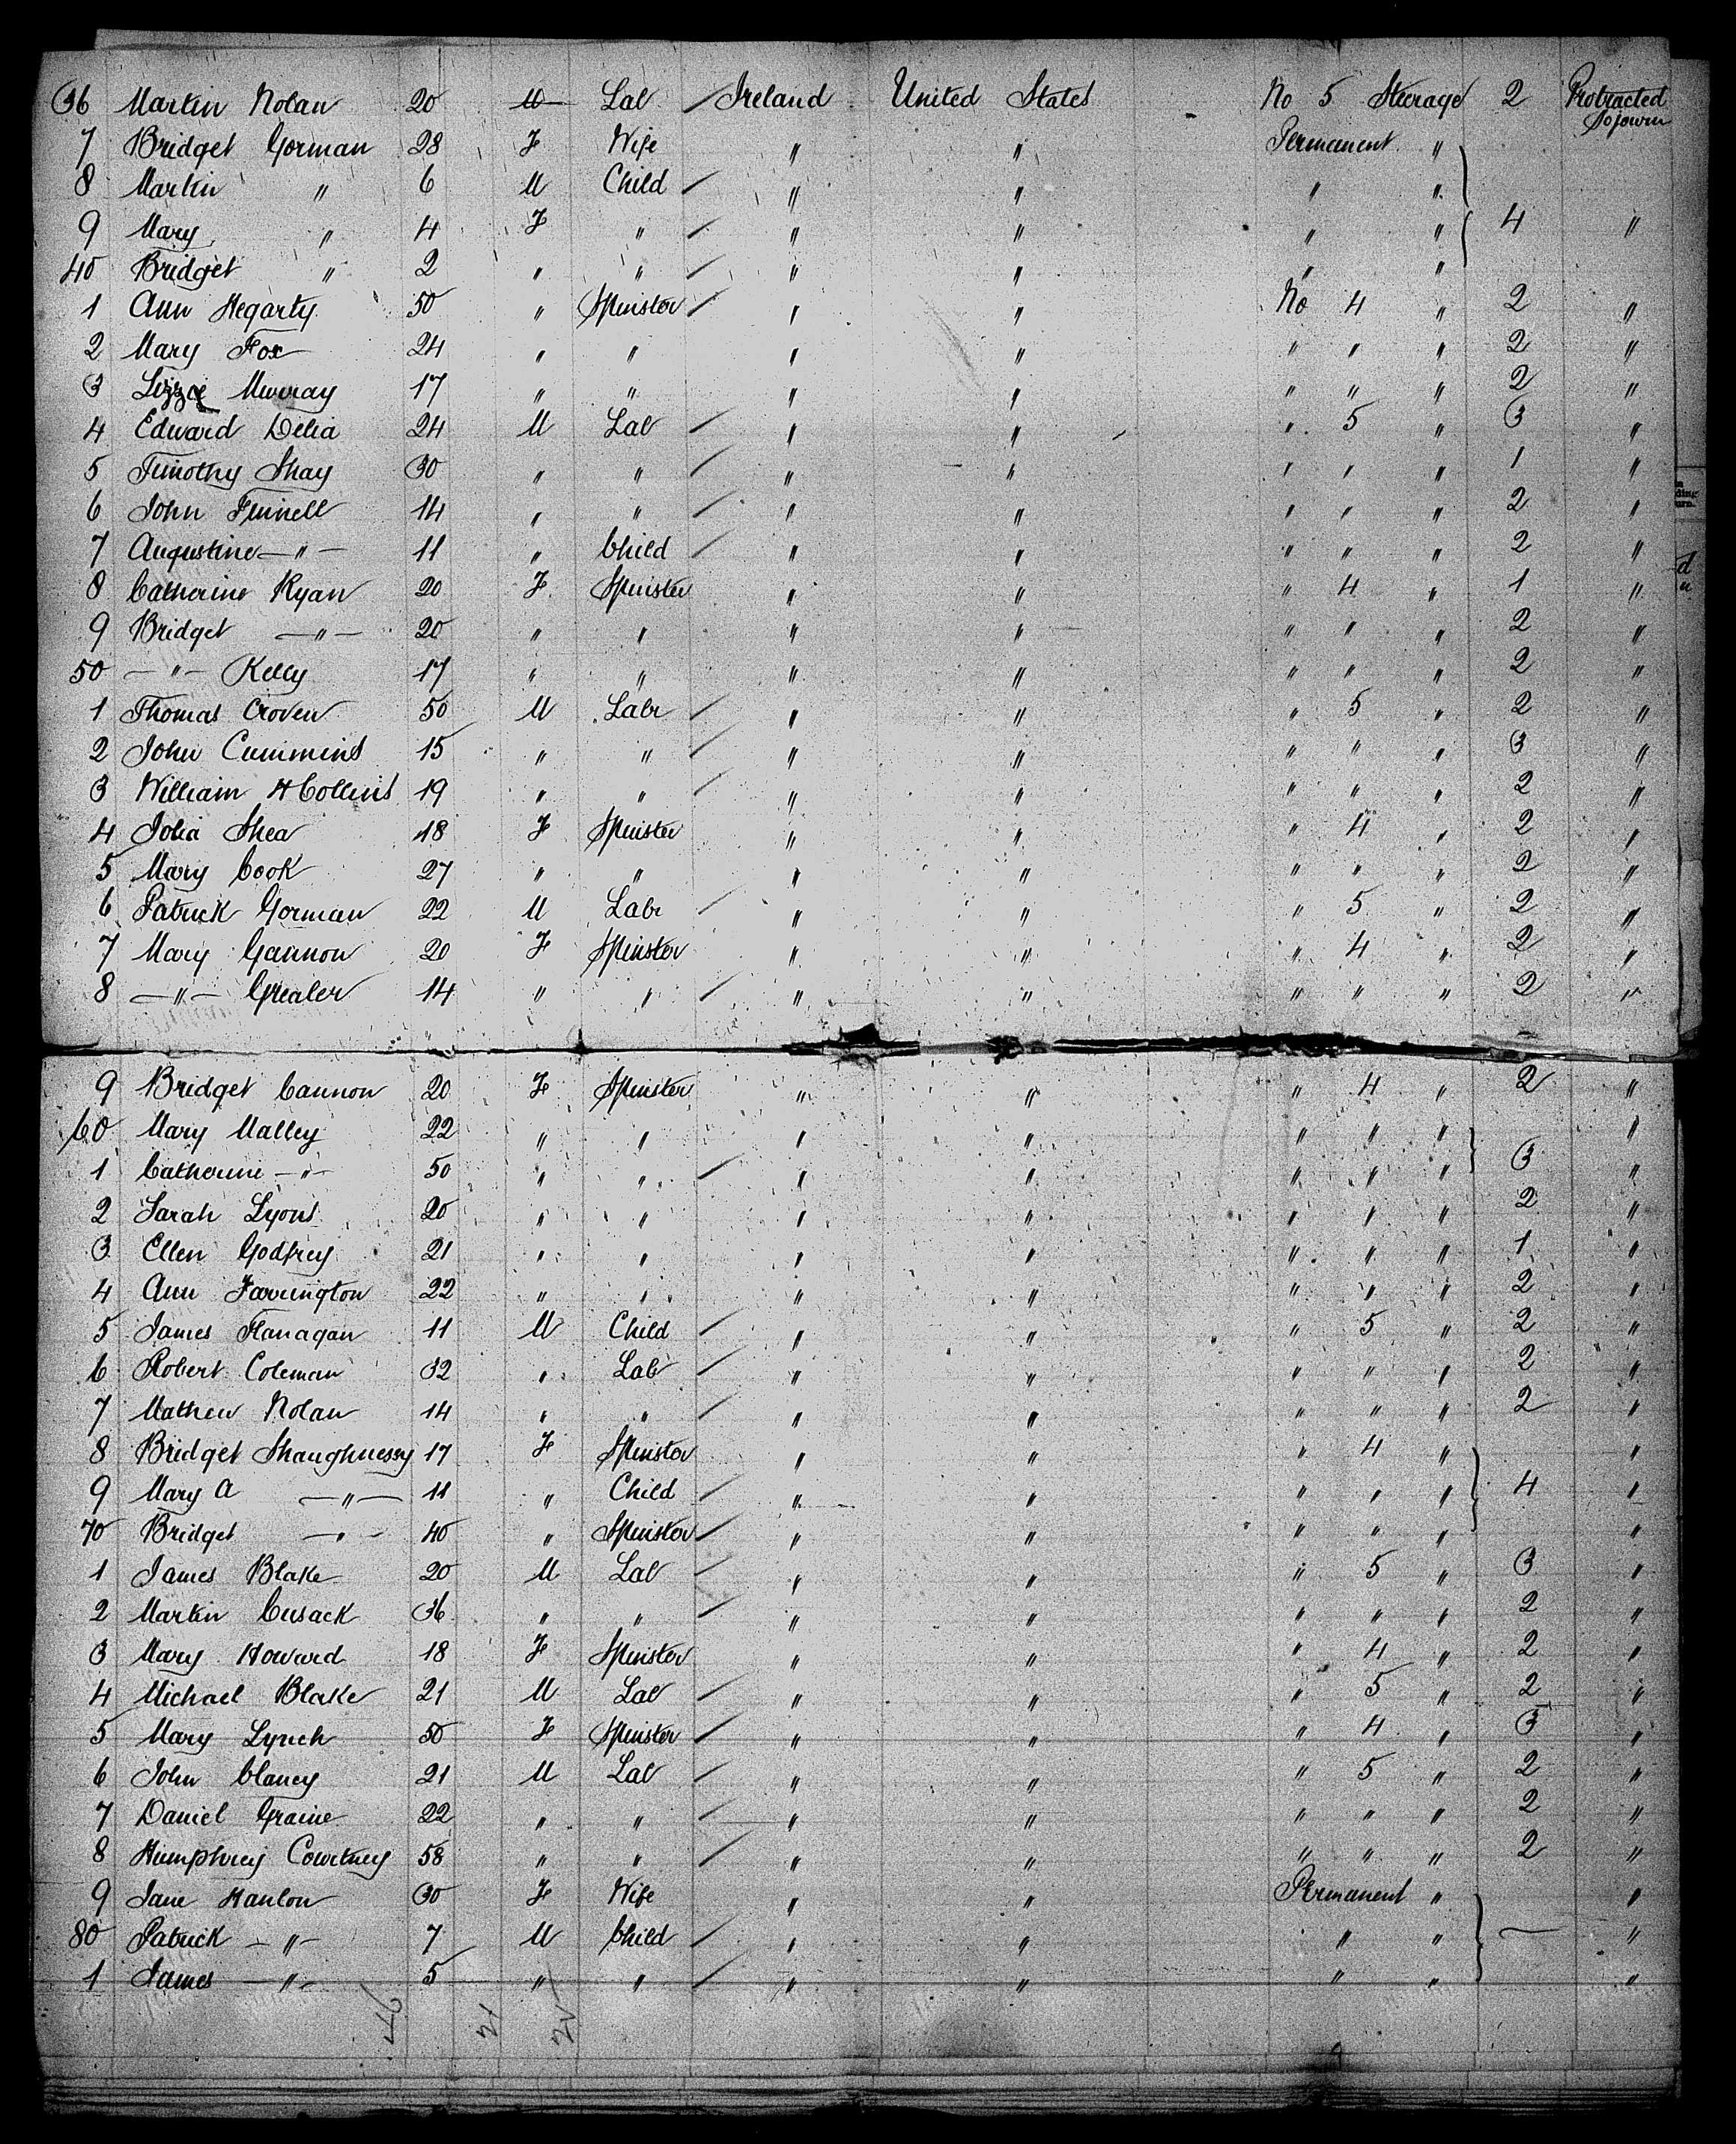 36 Martin Nolan 20 M Lab / Ireland United States No 5 Steerage 2 Protracted Sojourn
7 Bridget Gorman 28 F Wife " " Permanent "
8 Martin " 6 M Child / " " " "
9 Mary " 4 F " / " " " " 4 "
40 Bridget " 2 " " / " " " "
1 Ann Hegarty 50 " Spinster / " " No 4 " 2 "
2 Mary Fox 24 " " " " " " " 2 "
3 Lizzie Murray 17 " " " " " " " 2 "
4 Edward Delia 24 M Lab / " " " 5 " 3 "
5 Timothy Shay 30 " " / " " " " " 1 "
6 John Finnell 14 " " / " " " " " 2 "
7 Augustine — " — 11 " Child / " " " " " 2 "
8 Catherine Ryan 20 F Spinster " " " 4 " 1 "
9 Bridget — " — 20 " " " " " " " 2 "
50 — " — Kelly 17 " " " " " " " 2 "
1 Thomas Croven 50 M Labr / " " " 5 " 2 "
2 John Cummins 15 " " / " " " " " 3 "
3 William H Collins 19 " " / " " " " " 2 "
4 Johia Shea 18 F Spinster " " " 4 " 2 "
5 Mary Cook 27 " " " " " " " 2 "
6 Patrick Gorman 22 M Labr / " " " 5 " 2 "
7 Mary Gannon 20 F Spinster " " " 4 " 2 "
8 — " — Grealer 14 " " / " " " " " 2 "
9 Bridget Cannon 20 F Spinster " " " 4 " 2 "
60 Mary Malley 22 " " " " " " " "
1 Catherine — " — 50 " " / " " " " " 3 "
2 Sarah Lyons 20 " " " " " " " 2 "
3 Ellen Godfrey 21 " " " " " " " 1 "
4 Ann Farrington 22 " " " " " " " 2 "
5 James Flanagan 11 M Child / " " " 5 " 2 "
6 Robert Coleman 32 " Lab / " " " " " 2 "
7 Mathew Nolan 14 " " / " " " " " 2 "
8 Bridget Shaughnessy 17 F Spinster " " " 4 " "
9 Mary A — " — 11 " Child / " " " " " 4 "
70 Bridget — " — 40 " Spinster / " " " " " "
1 James Blake 20 M Lab / " " " 5 " 3 "
2 Martin Cusack 36 " " / " " " " " 2 "
3 Mary Howard 18 F Spinster " " " 4 " 2 "
4 Michael Blake 21 M Lab / " " " 5 " 2 "
5 Mary Lynch 50 F Spinster / " " " 4 " 3 "
6 John Clancy 21 M Lab / " " " 5 " 2 "
7 Daniel Graine 22 " " / " " " " " 2 "
8 Humphrey Courtney 58 " " / " " " " " 2 "
9 Jane Hanlon 30 F Wife " " Permanent " "
80 Patrick — " — 7 M Child / " " " " — "
1 James — " — 5 " " / " " " " "
46 21 25